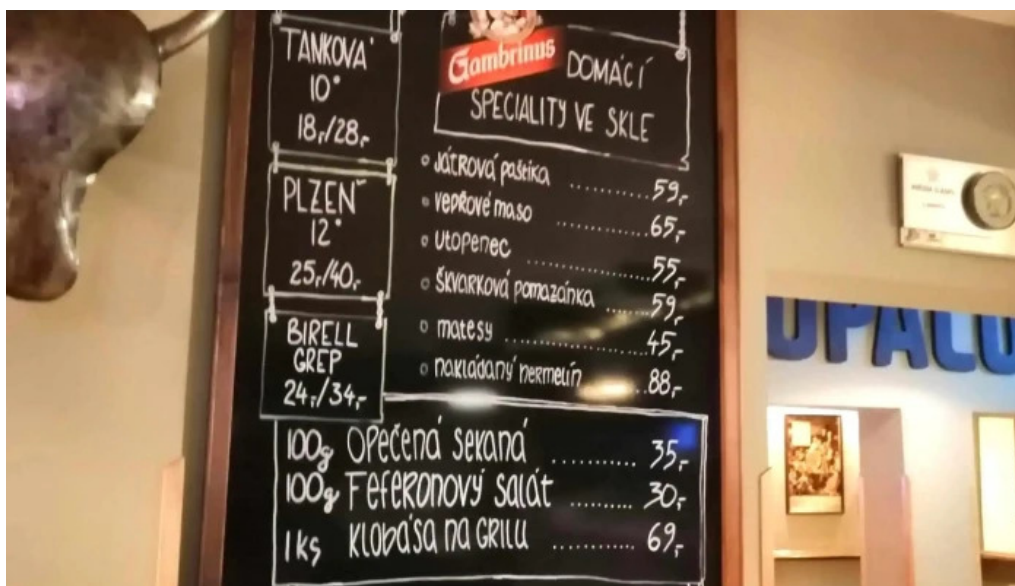 TANKOVÁ
10°
18,-/28,-
PLZEŇ
12°
25,-/40,-
BIRELL
GREP
24,-/34,-
Gambrinus
DOMÁCÍ
SPECIALITY VE SKLE
JÁTROVÁ PAŠTIKA ........... 59,-
VEPŘOVÉ MASO ........... 65,-
UTOPENEC ........... 55,-
ŠKVARKOVÁ POMAZÁNKA ....... 59,-
MATESY ........... 45,-
NAKLÁDANÝ HERMELÍN ....... 88,-
100g OPEČENÁ SEKANÁ ........... 35,-
100g FEFERONOVÝ SALÁT ......... 30,-
1KS KLOBÁSA NA GRILU ........... 69,-
OPALO